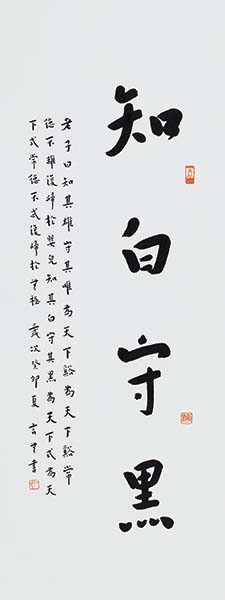 知白守黑
老子曰知其雄守其雌為天下谿為天下谿常
德不離復歸於嬰兒知其白守其黑為天下式為天
下式常德不忒復歸於無極 歲次癸卯夏 書